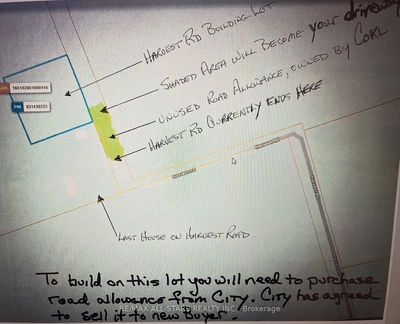 HARVEST RD BUILDING LOT
SHADED AREA WILL BECOME your driveway
UNUSED ROAD ALLOWANCE, OWNED BY COKL
HARVEST RD CURRENTLY ENDS HERE
165102601000410
PIN 631430253
LAST HOUSE ON HARVEST ROAD
To build on this lot you will need to purchase
road allowance from CITY. CITY has agreed
to sell it to new buyer
RE/MAX ALL-STARS REALTY INC., Brokerage